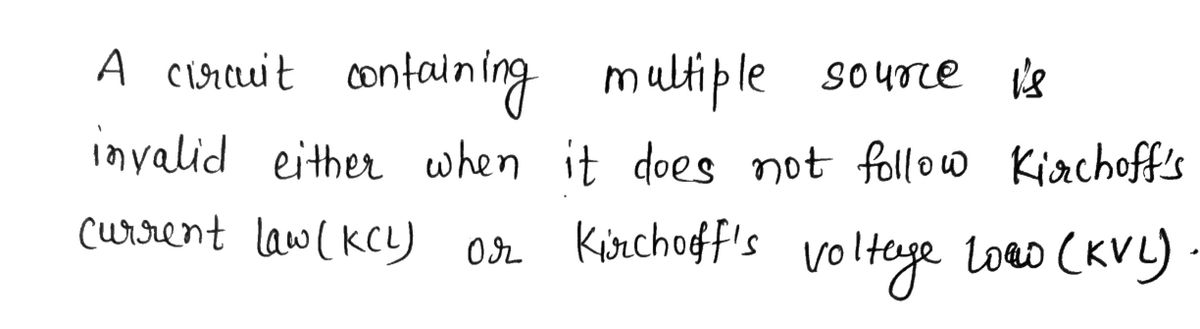 A circuit containing multiple source is
invalid either when it does not follow Kirchoff's
current law (KCL) or Kirchoff's voltage law (KVL).